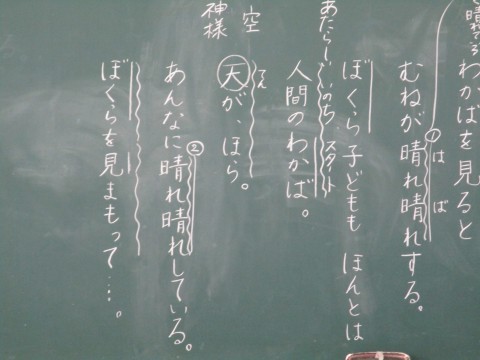 わかばを見ると
むねが晴れ晴れする。
① は ば
ぼくら子どもも ほんとは
あたらしいいのち スタート
人間のわかば。
天が、ほら。
てん
空
神様
あんなに晴れ晴れしている。
②
ぼくらを見まもって…。